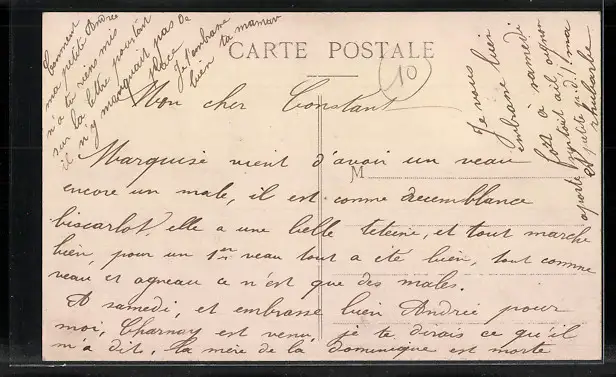 CARTE POSTALE
10
Mon cher Constant
Marquise vient d'avoir un veau
M
encore un male, il est comme
biscarlot, elle a une belle teteine, et tout marche
bien, pour un 1er veau tout a été bien, tout comme
veau et agneau ce n'est que des males.
A samedi, et embrasse bien Andrée pour
moi, Charnay est venu, je te dirais ce qu'il
m'a dit. la mère de la dominique est morte
Comment
ma petite Andrée
n'a tu riens mis
sur la lettre pourtant
il n'y manquait pas de
place
Je t'embrasse
bien ta maman
Je vous
embrasse bien
a samedi
ail ognon
apporte surtout
ma
petite
rhubarbe